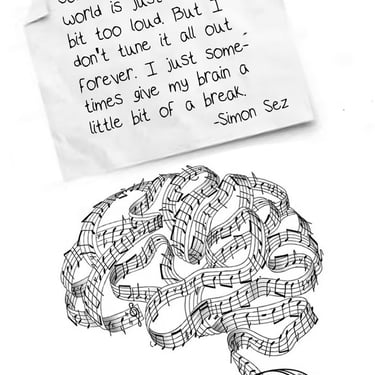 world is just
bit too loud. But I
don't tune it all out
forever. I just some-
times give my brain a
little bit of a break.
-Simon Sez